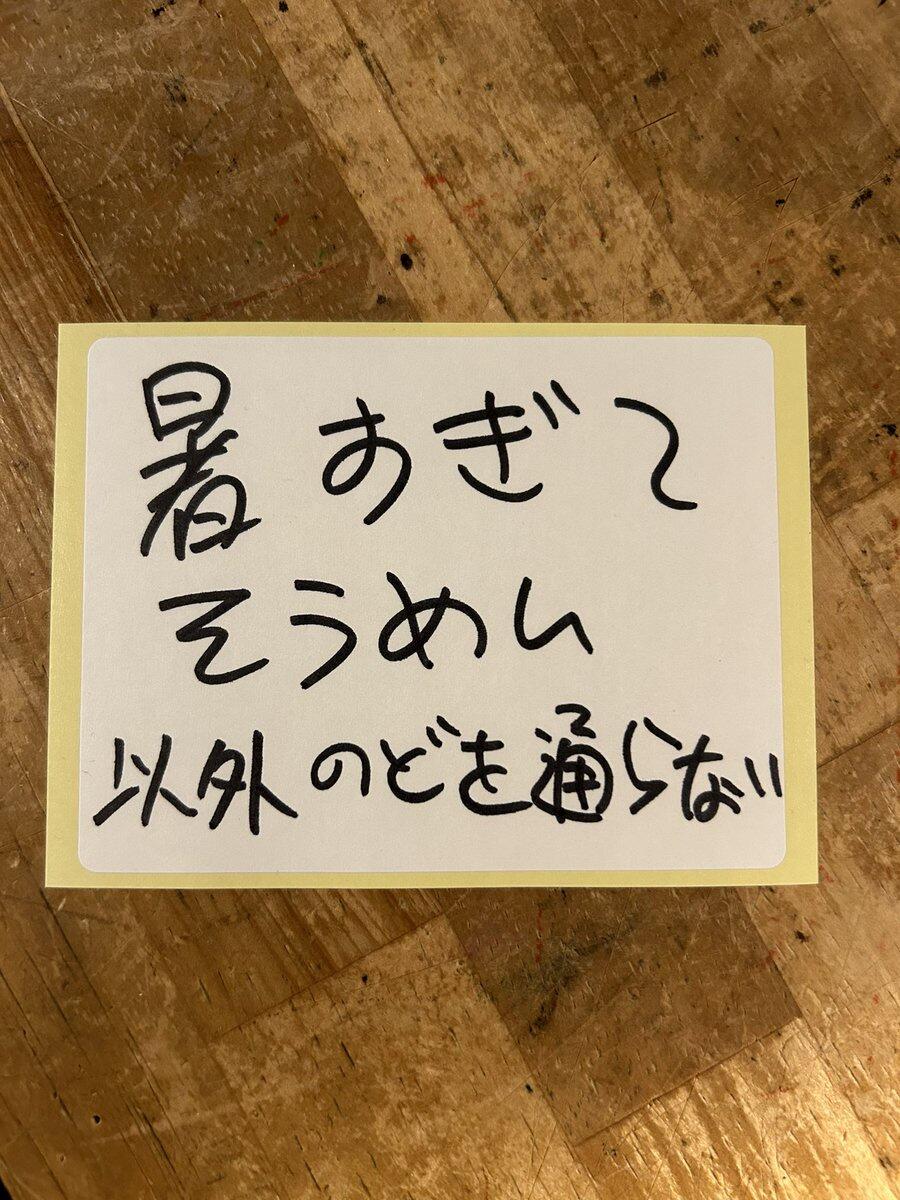 暑すぎて
そうめん
以外のどを通らない